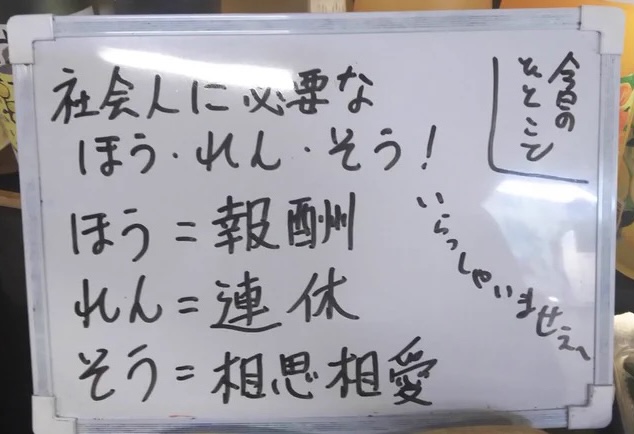 今日の
ひとこと
社会人に必要な
ほう・れん・そう!
ほう=報酬
れん=連休
そう=相思相愛
いらっしゃいませぇ〜